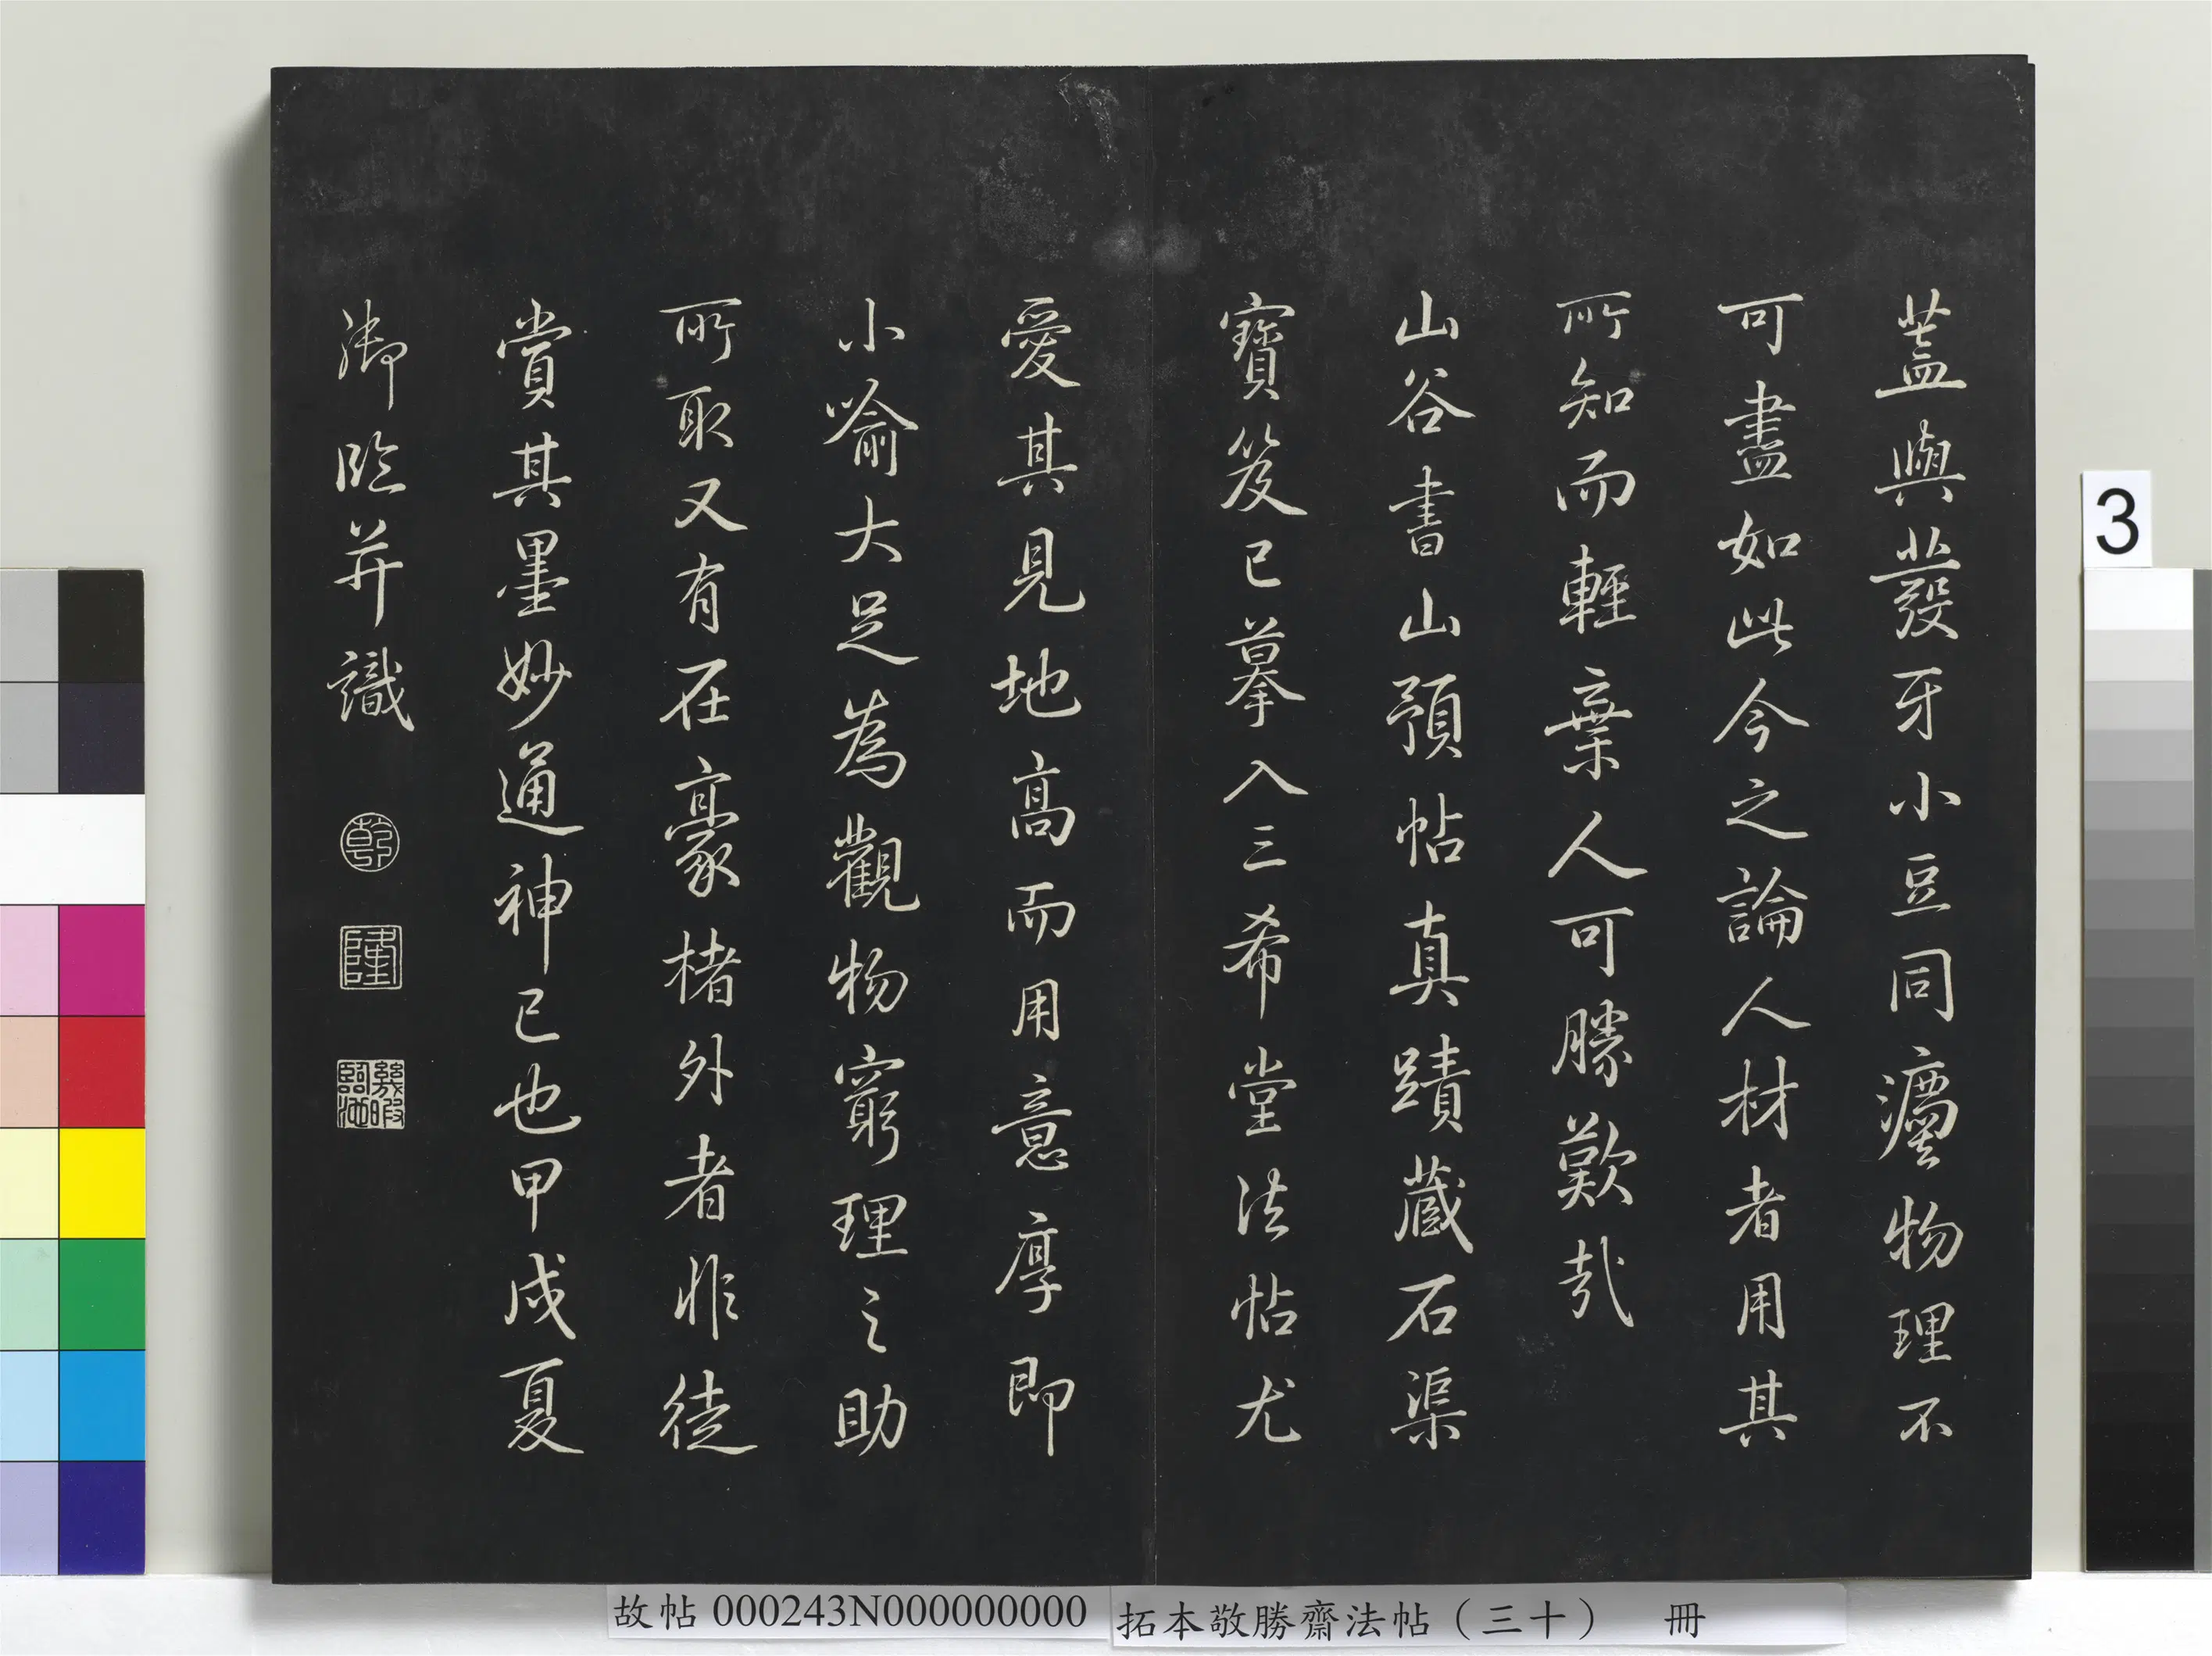 蓋與發牙小豆同瘞物理不
可盡如此今之論人材者用其
所知而輕棄人可勝歎哉
山谷書山預帖真蹟藏石渠
寶笈已摹入三希堂法帖尤
愛其見地高而用意厚即
小喻大足為觀物窮理之助
所取又有在豪楮外者非徒
賞其墨妙通神已也甲戌夏
御臨并識
乾
隆
幾暇臨池
3
故帖 000243N000000000
拓本敬勝齋法帖（三十） 冊